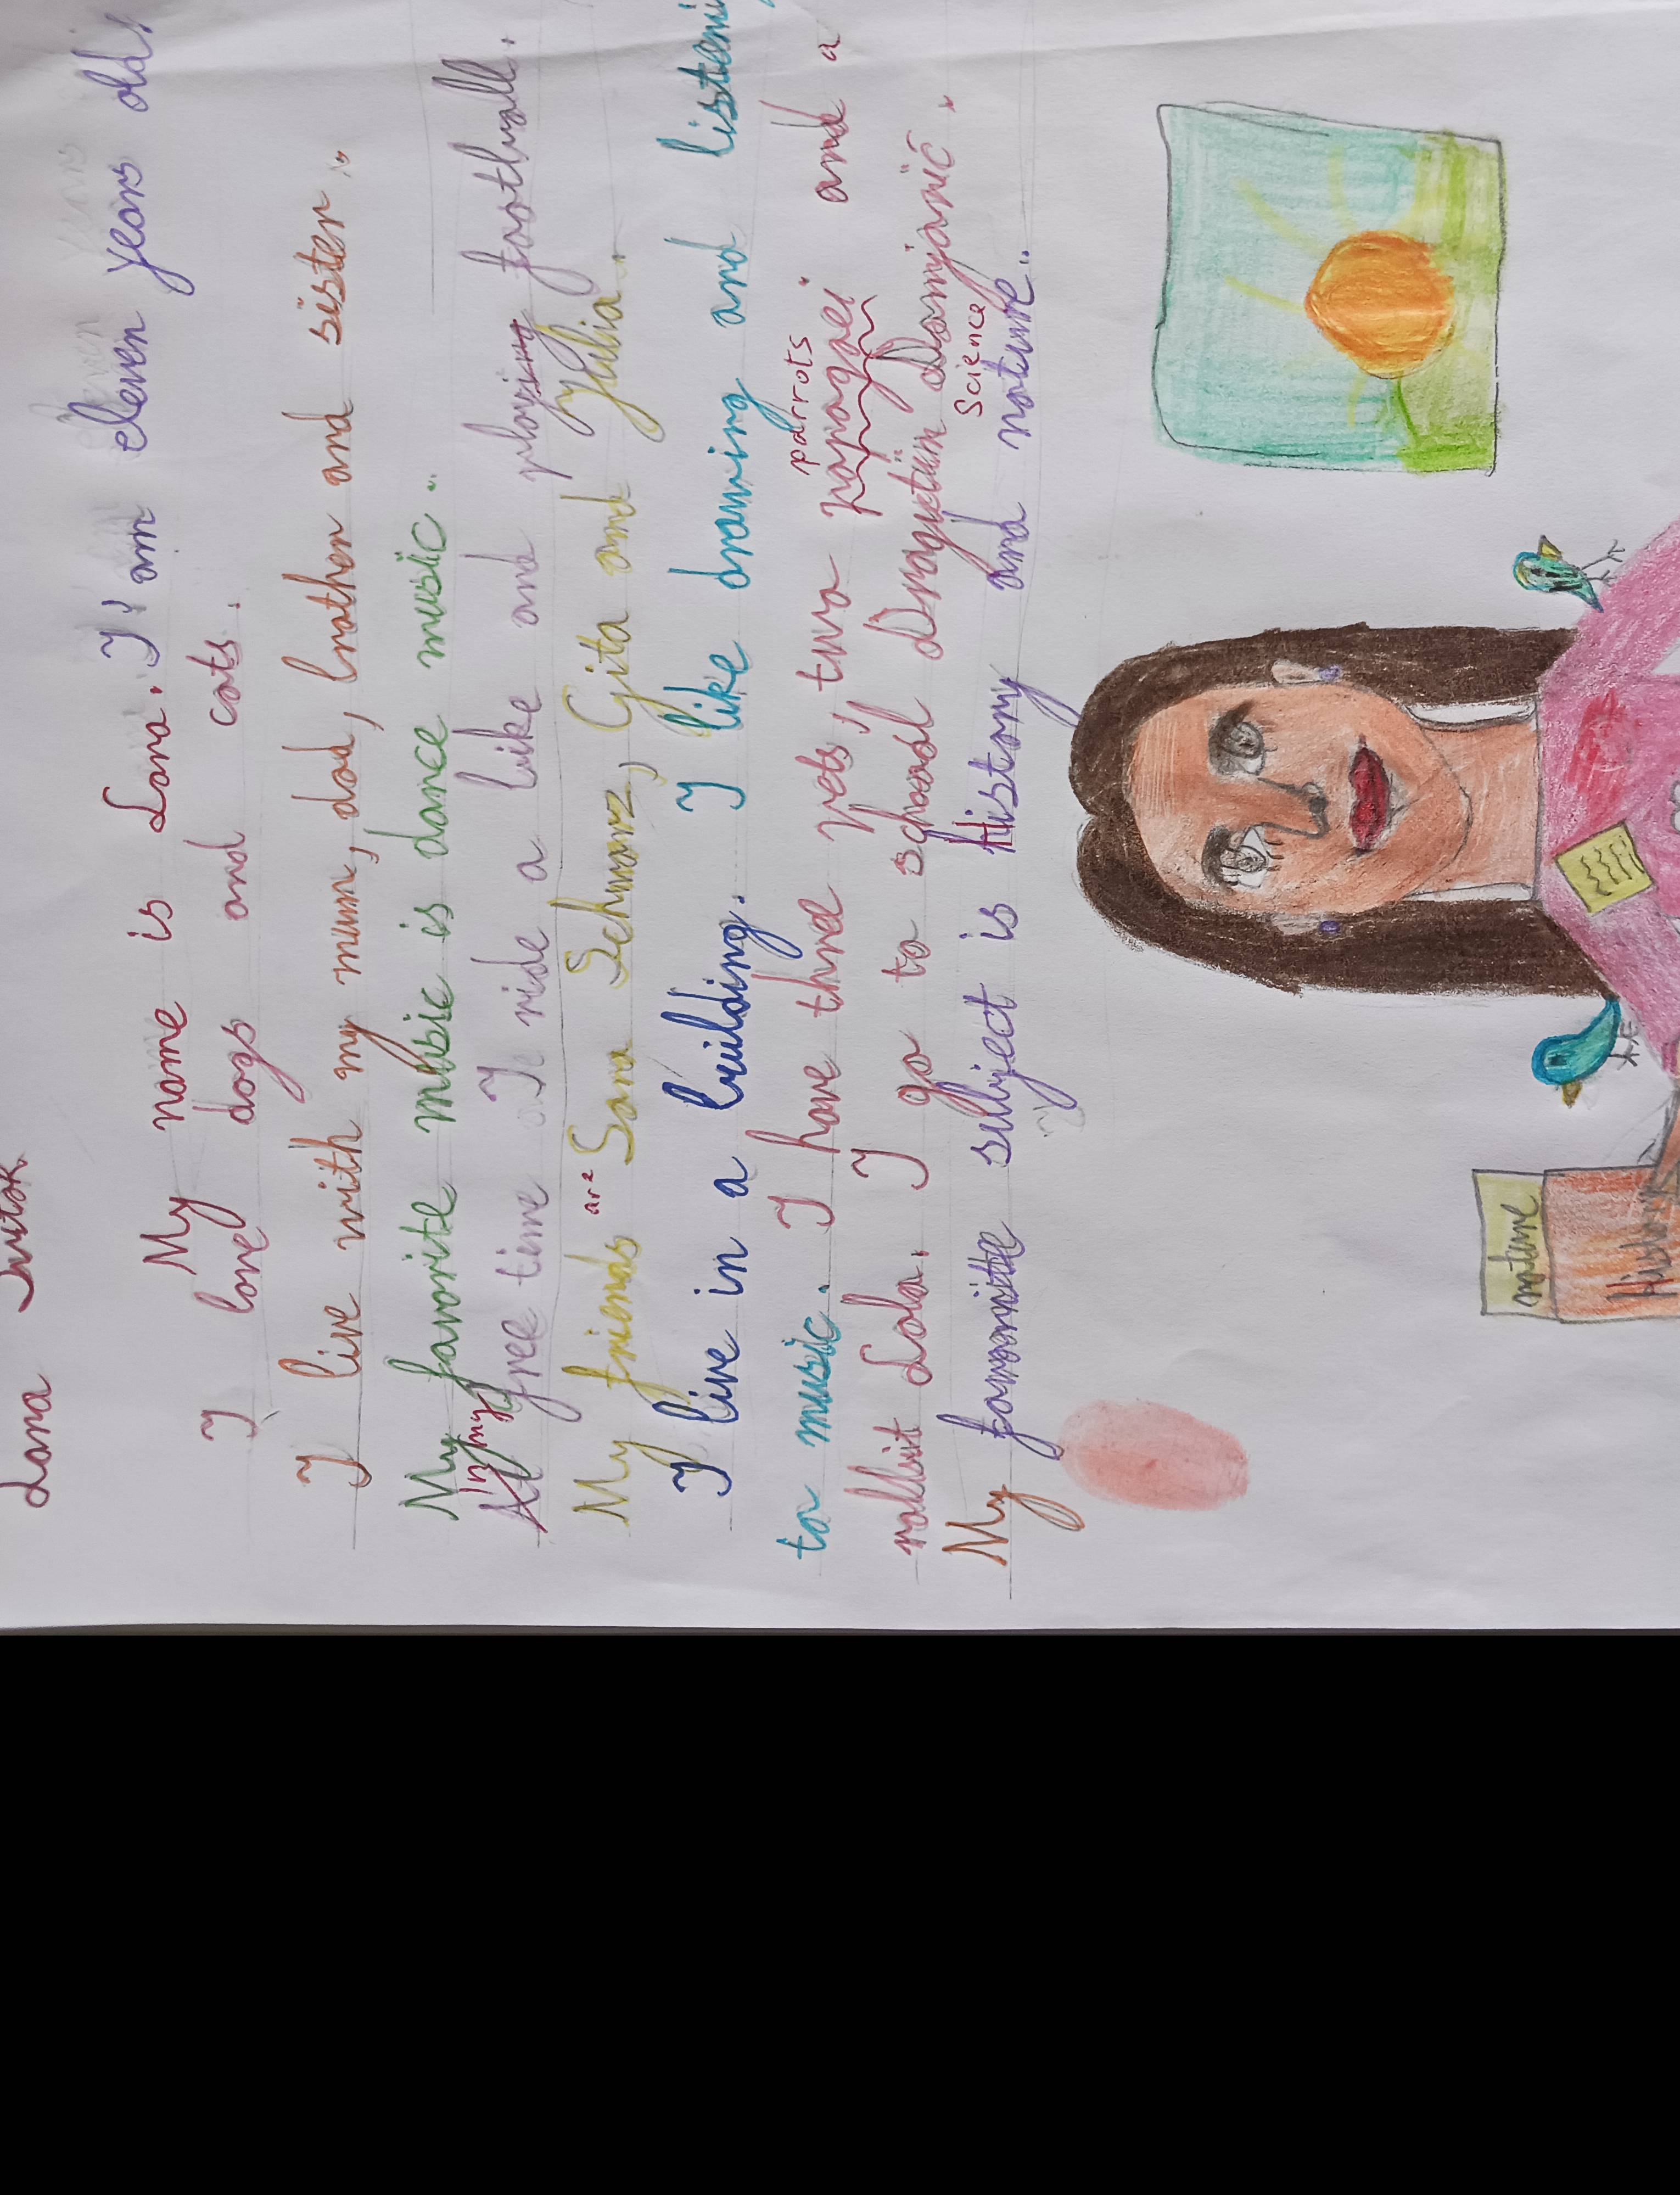 Lana
My name is Lana. I am eleven years old.
I love dogs and cats.
I live with my mum, dad, brother and sister.
My favorite music is dance music.
In my
At free time I ride a bike and playing foothball.
are
My friends Sara Schwarz, Gita and Yulia.
I live in a building. I like drawing and listening
parrots
to music. I have three pets, two papagaei and a
rabbit Lola. I go to school Dragutin Domjanić.
Science
My favorite subject is History and nature.
nature
History